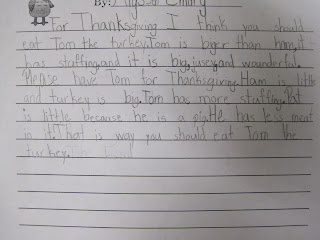 By: Alyssa
For Thanksgiving I think you should
eat Tom the turkey. Tom is biger than ham, it
has stuffing, and it is big, jusey, and wounderful.
Please have Tom for Thanksgiving. Ham is little
and turkey is big. Tom has more stuffing. Pat
is little because he is a pig. He has less meat
in it. That is way you should eat Tom the
turkey.